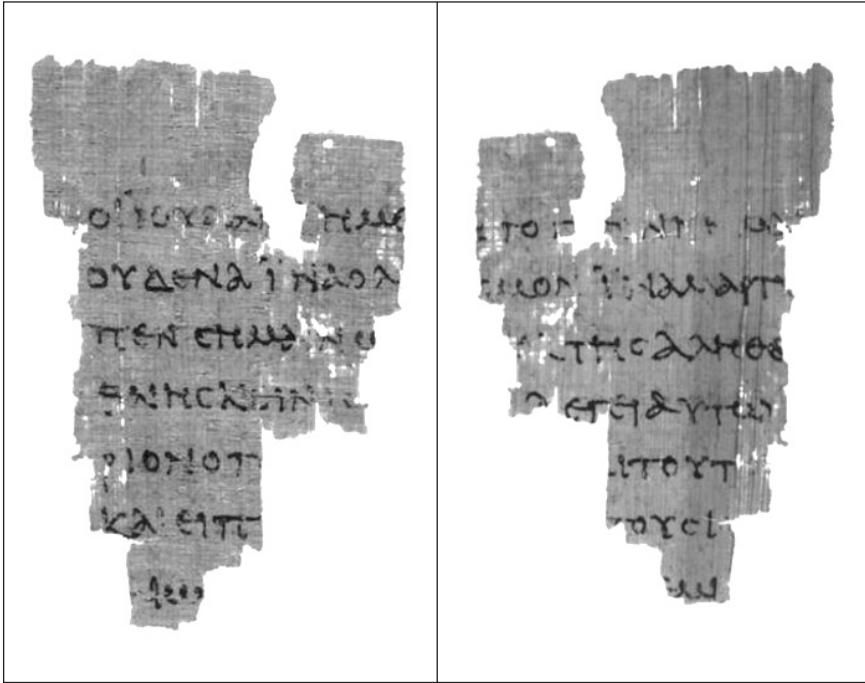 ΟΙ ΙΟΥΔΑΙ ΗΜΕ
ΟΥΔΕΝΑ ΪΝΑ Ο Λ
ΠΕΝ ϹΗΜΑΙΝΩ
ΘΝΗϹΚΕΙΝ ΙϹ
ΡΙΟΝ Ο Π
ΚΑΙ ΕΙΠ
ΤΟ Γ ΕΝΝΗΜΑΙ
ϹΜΟΝ ΪΝΑ ΜΑΡΤΥ
ΤΗϹ ΑΛΗΘΕ
ΛΕΓΕΙ ΑΥΤΩ
ΑΙ ΤΟΥΤ
ΤΟΥϹ Ι